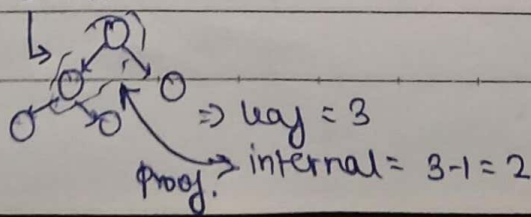 ⇒ leaf = 3
Proof. > internal = 3-1 = 2